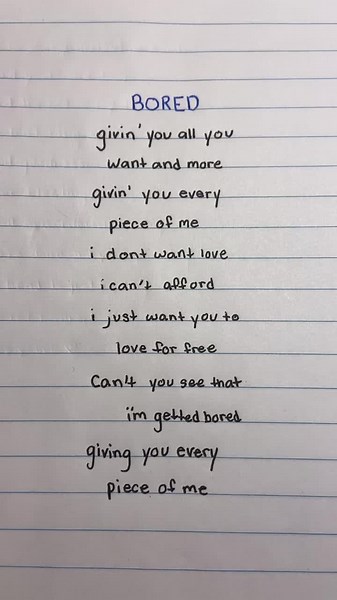 BORED
givin' you all you
want and more
givin' you every
piece of me
i dont want love
i can't afford
i just want you to
love for free
Can't you see that
i'm getted bored
giving you every
piece of me